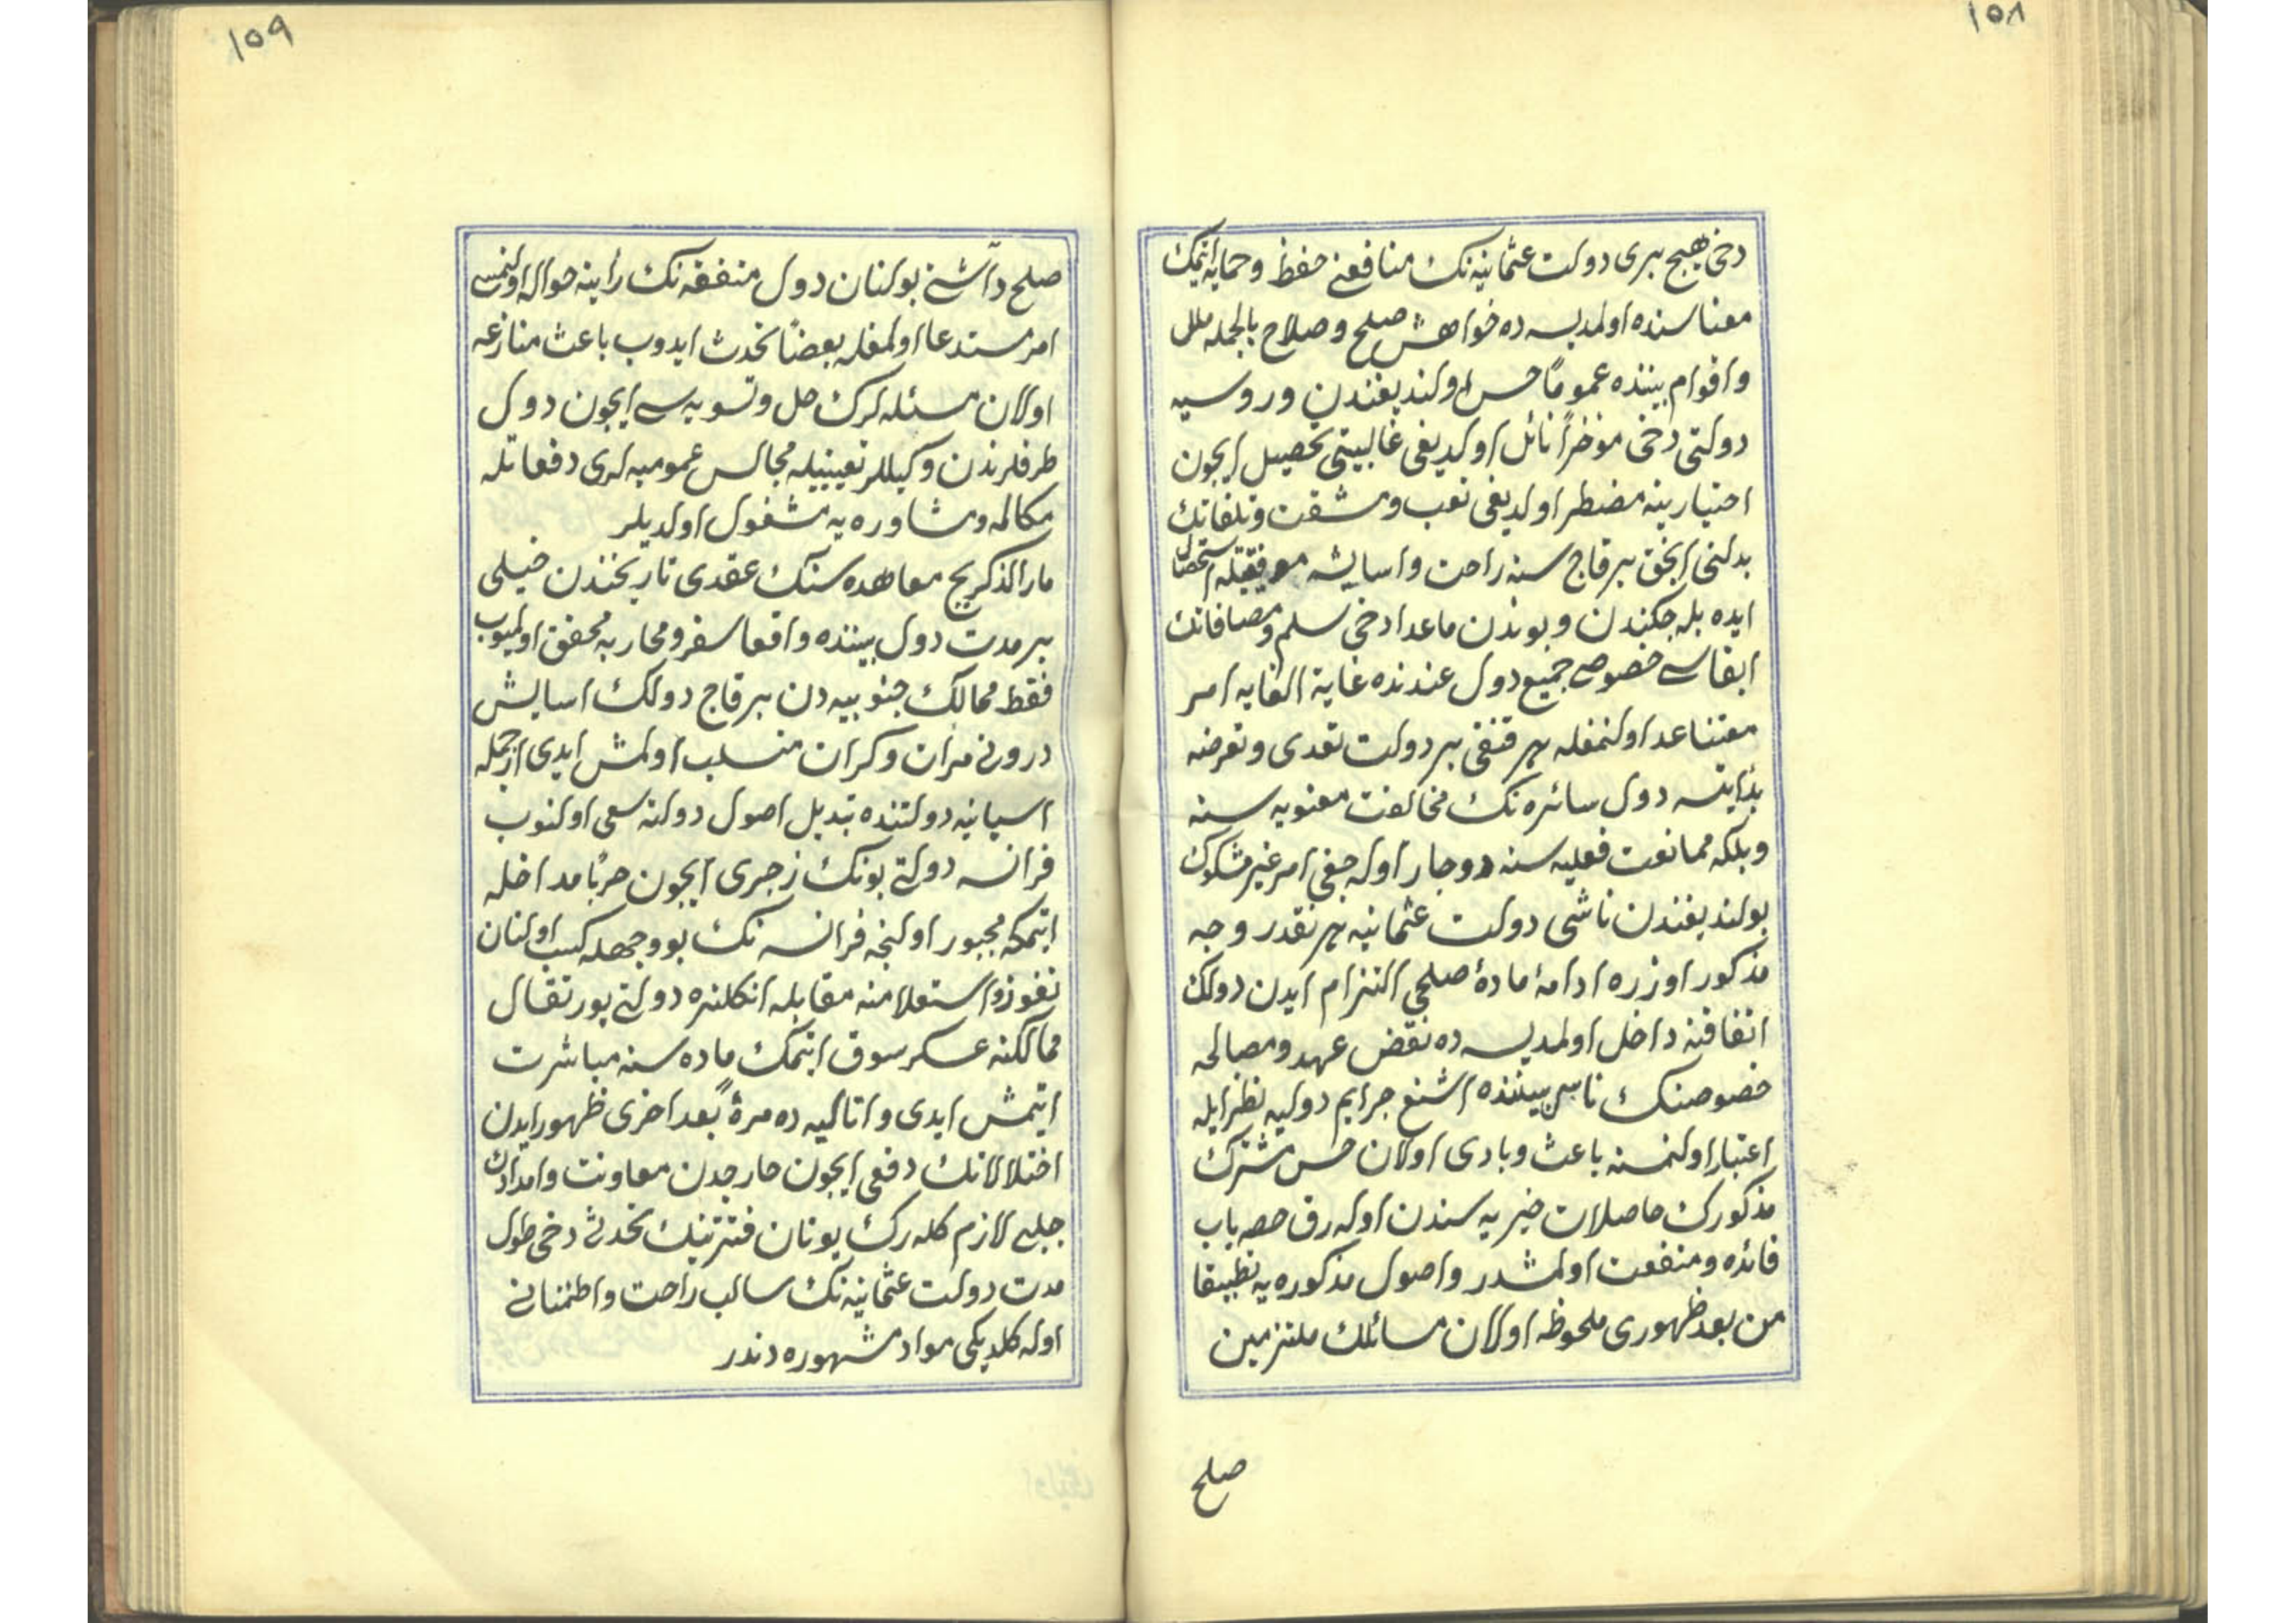 ١٥٨
دخی هیچ بری دولت عثمانیه‌نك منافعنی حفظ و حمایه ایتمك
معناسنده اولمدیسه ده خواهش صلح و صلاح بالجمله ملل
و اقوام بیننده عموماً حس اولندیغندن و روسیه
دولتی دخی مؤخراً نائل اولدیغی غالبیتی تحصیل ایچون
اختیارینه مضطر اولدیغی تعب و مشقت و تلفاتك
بدلنی انجق بر قاچ سنه راحت و اسایشه موفقیتله استحصال
ایده بله‌جكندن و بوندن ماعدا دخی سلم و مصافاتك
ابقاسی خصوصی جمیع دول عندنده غایة الغایه امر
معتنا عد اولنمغله هر قنغی بر دولت تعدی و تعرضه
بدٔ ایتسه دول سائره‌نك مخالفت معنویه سنه
و بلكه ممانعت فعلیه سنه دوچار اوله‌جغی امر غیر مشكوك
بولندیغندن ناشی دولت عثمانیه هر نقدر وجه
مذكور اوزره ادامهٔ مادهٔ صلحی التزام ایدن دولك
اتفاقنه داخل اولمدیسه ده نقض عهد و مصالحه
خصوصنك ناس بیننده اشنع جرایم دولیه نظر ایله
اعتبار اولنمسنه باعث و بادی اولان حس مشترك
مذكورك حاصلات خیریه سندن اوله‌رق حصه یاب
فائده و منفعت اولمشدر و اصول مذكوره‌یه تطبیقا
من بعد ظهوری ملحوظه اولان مسائلك ملتزمین
صلح
١٥٩
صلح و آشتی بولنان دول متفقه‌نك رأینه حواله اولنمسی
امر مستدعا اولمغله بعضاً تحدث ایدوب باعث منازعه
اولان مسئله‌لرك حل و تسویه سی ایچون دول
طرفلرندن وكیللر تعیینیله مجالس عمومیه‌لری دفعاتله
مكالمه و مشاوره‌یه مشغول اولدیلر
مار الذكر یچ معاهده سنك عقدی تاریخندن خیلی
بر مدت دول بیننده واقعا سفر و محاربه محقق اولمیوب
فقط ممالك جنوبیه‌دن بر قاچ دولك اسایش
درونی مران و كران منسلب اولمش ایدی از جمله
اسپانیه دولتنده تبدیل اصول دولته سعی اولنوب
فرانسه دولتی بونك زجری ایچون حرباً مداخله
ایتمكه مجبور اولنجه فرانسه‌نك بو وجهله كسب اولنان
نفوذ و استعلامنه مقابله انكلتره دولتی پورتقال
ممالكنه عسكر سوق ایتمك ماده سنه مباشرت
ایتمش ایدی و اتالیه‌ده مرةً بعد اخری ظهور ایدن
اختلالاتك دفعی ایچون خارجدن معاونت و امدادك
جلبی لازم كله‌رك یونان فترتنك تحدثی دخی طول
مدت دولت عثمانیه‌نك سالب راحت و اطمنانی
اوله كلدیكی مواد مشهوره‌دندر